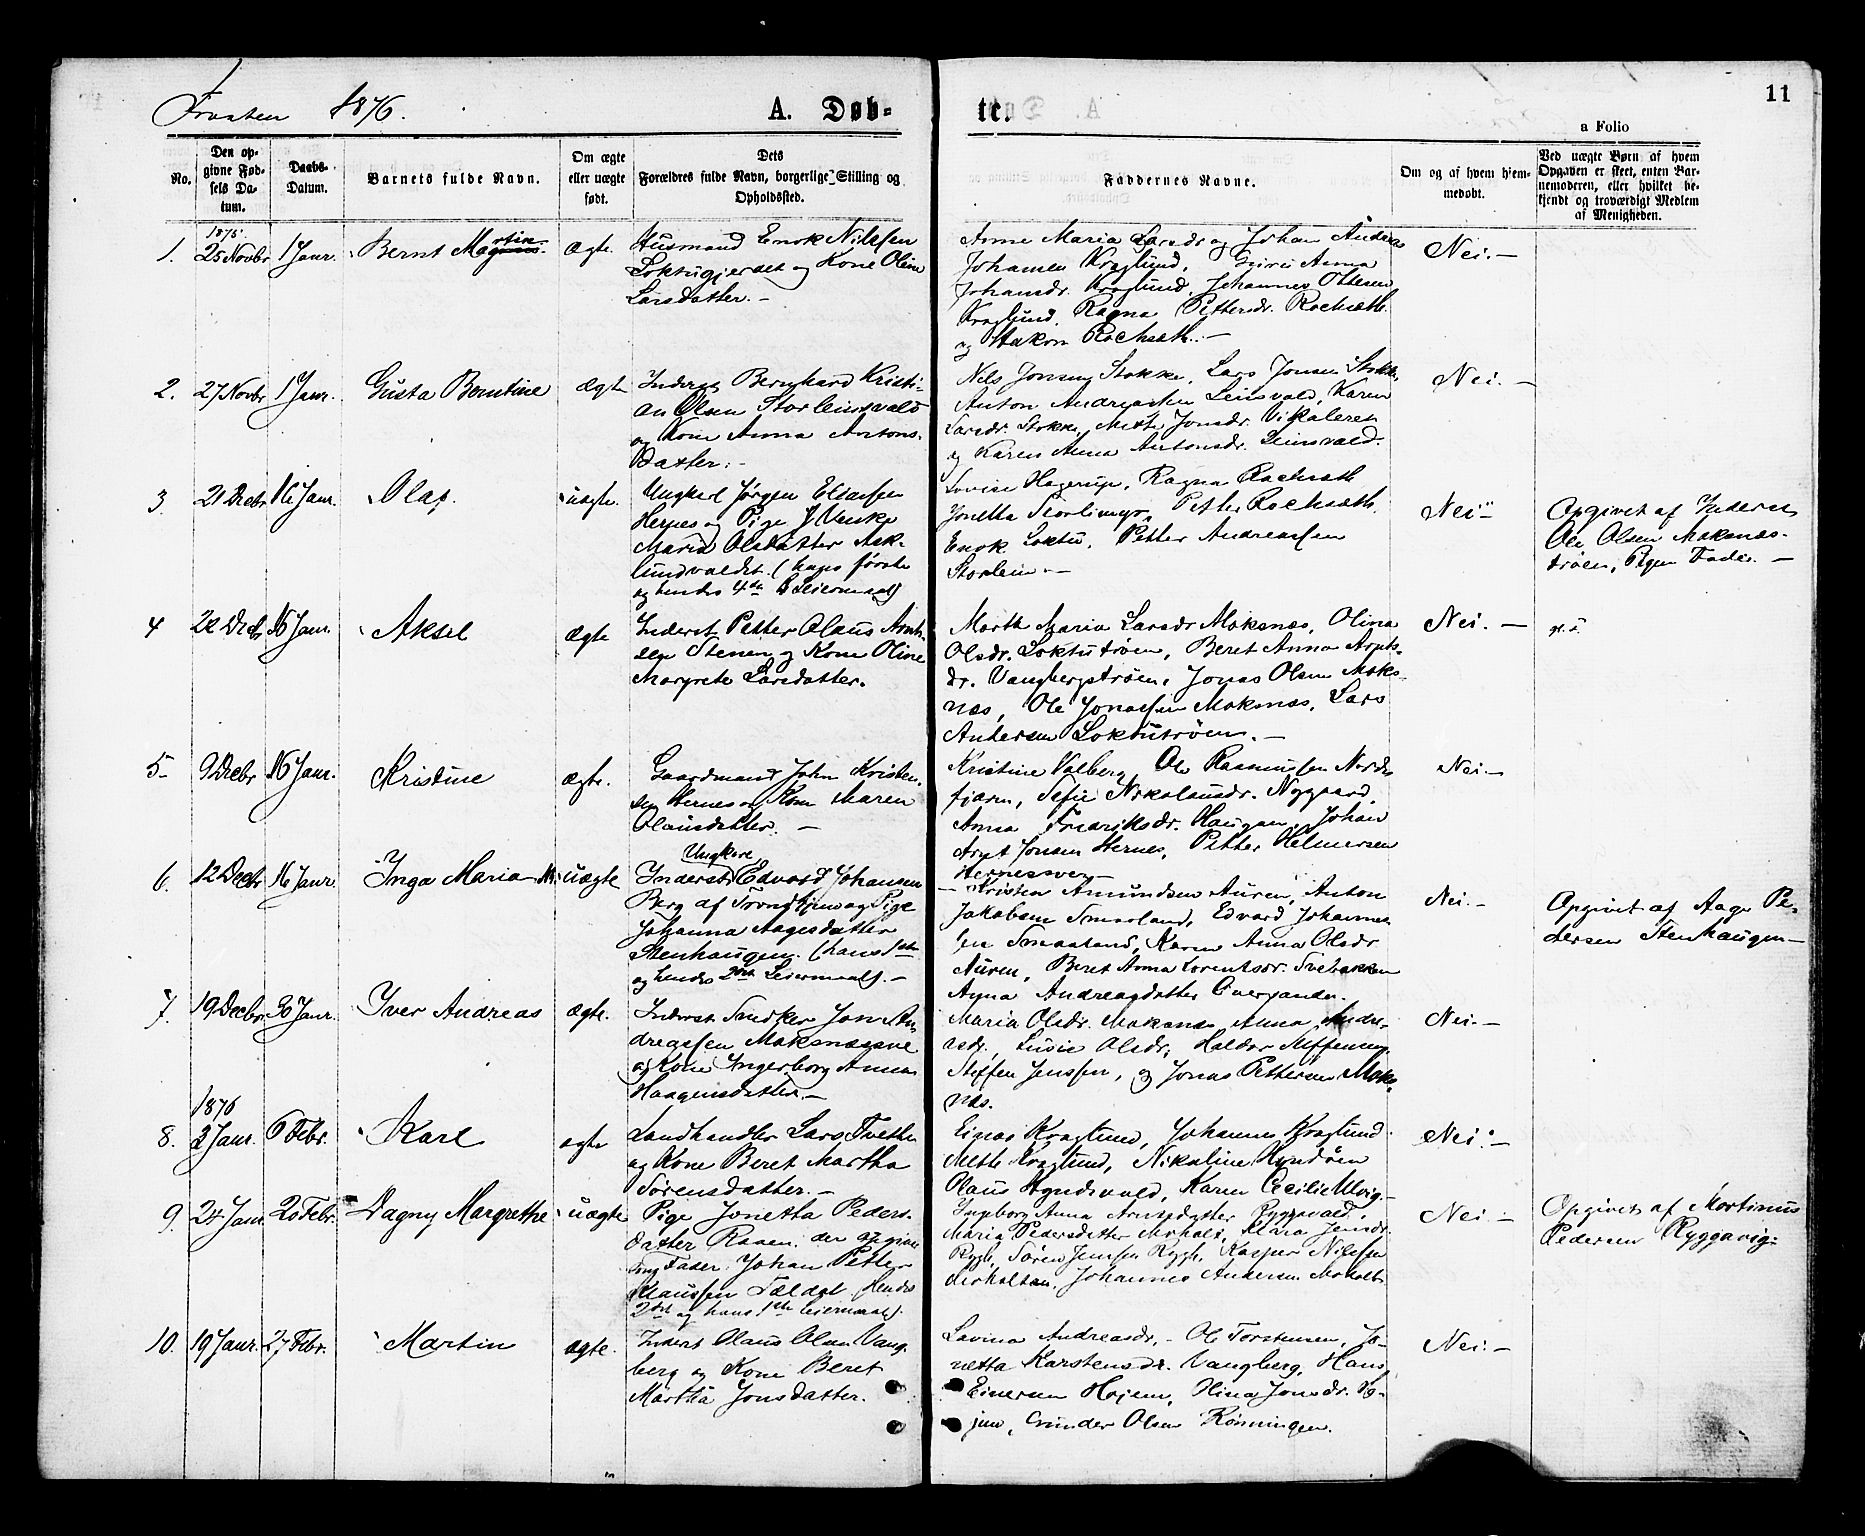 Frosten 1876.
A. Døb-
te.
11
a Folio
No.
Den op-
givne Fød-
sels Da-
tum.
Daabs-
Datum.
Barnets fulde Navn.
Om ægte
eller uægte
født.
Dets
Forældres fulde Navn, borgerlige Stilling og
Opholdssted.
Faddernes Navne.
Om og af hvem hjem-
medøbt.
Ved uægte Børn af hvem
Opgaven er skeet, enten Bar-
nemoderen, eller hvilket be-
kjendt og troværdigt Medlem
af Menigheden.
1.
1875
25 Novbr
1 Janr.
Bernt Martin
ægte.
Husmand Enok Nilssen
Loktugjerdet og Kone Oline
Larsdatter. -
Anne Maria Larsdr og Johan Andreas
Johansen Kraglund, Anna
Johansdr. Kraglund, Johannes Ottesen
Kraglund, Ragna Pettersdr. Rochseth
og Hakon Rochseth. -
Nei. -
2.
27 Novbr
1 Janr.
Gusta Berntine
ægte
Inderst Bernhard Kristi-
an Olsen Storleinsvald
og Kone Anna Antons-
datter. -
Nels Jonsen Stokke, Lars Jonsen Stokke,
Anton Andreassen Leinsvald, Karen
Larsdr. Stokke, Mette Jonsdr. Vikaleret
og Karen Anna Antonsdr. Leinsvald.
Nei. -
3
21 Decbr
16 Janr.
Olaf.
uægte.
Ungkarl Jørgen Eliassen
Hernes og Pige
Maria Olsdatter Ask-
lundvaldet. (hans første
og hendes 4de Leiermaal)
Lovise Hagerup, Ragna Rochseth
Jonetta Storlimyr, Petter Rochseth,
Enok Loktu, Petter Andreassen
Storlein. -
Nei -
Opgivet af Inderst
Ole Olsen Moksnes-
trøen, Pigens Fader. -
4
22 Decbr
16 Janr.
Aksel
ægte
Inderst Petter Olaus Arnt-
sen Stenen og Kone Oline
Margrete Larsdatter.
Marth Maria Larsdr Moksnæs, Olina
Olsdr. Loktutrøen, Beret Anna Arnts-
dr. Vangbergstrøen, Jonas Olsen Moks-
næs, Ole Jonassen Moksnæs, Lars
Andersen Loktutrøen. -
Nei. -
5
9 Decbr
16 Janr.
Kristine
ægte.
Gaardmand John Kristen-
sen Hernes og Kone Maren
Olausdatter. -
Kristine Valberg, Ole Rasmussen Nord-
fjæren, Sefie Nikolausdr. Nygaard,
Anna Fredriksdr. Haugan, Johan
Arnt Jonsen Hernes, Petter Helmersen
Hernessven -
Nei. -
6.
12 Decbr
16 Janr.
Inga Maria
uægte
Ungkarl
Inderst Edvard Johansen
Berg af Trondhjem og Pige
Johanna Aagesdatter
Stenhaugen. (hans 1ste
og hendes 2det Leiermaal). -
Kristen Amundsen Auren, Anton
Jakobsen Smaaland, Edvard Johannes-
sen Smaaland, Karen Anna Olsdr
Auren, Beret Anna Lorentsdr. Svebakken
Anna Andreasdatter Overgander.
Nei. -
Opgivet af Aage Pe-
dersen Stenhaugen -
7.
19 Decbr
30 Janr.
Iver Andreas
ægte.
Inderst Snedker Jon An-
dreassen Moksnæssve
og Kone Ingerborg Anna
Haagensdatter. -
Maria Olsdr. Moksnæs, Anna Andre-
asdr., Lusie Olsdr, Haldor Steffensen,
Steffen Jenssen, og Jonas Pettersen Moks-
næs.
Nei. -
8.
1876
3 Janr.
6 Febr.
Karl
ægte
Landhandler Lars Tvette
og Kone Beret Martha
Sørensdatter. -
Einar Kraglund, Johannes Kraglund
Mette Kraglund, Nikoline Hyndøen
Olaus Hyndsvald, Karen Cecilie Ulvig -
Nei. -
9.
24 Janr
20 Febr.
Dagny Margrethe
uægte
Pige Jonetta Peders-
datter Raaen. den opgivne
Fader. Johan Petter
Klaussen Fældal. (Hendes
2det og hans 1ste Leiermaal).
Ingborg Anna Arntsdatter Ryggavald,
Maria Pedersdatter Moholt, Klara Jensdr.
Rygh, Søren Jenssen Rygh, Kasper Nilssen
Moholtan, Johannes Andersen Moholt
Nei. -
Opgivet af Mortinus
Pedersen Ryggavig. -
10.
19 Janr.
27 Febr.
Martin
ægte.
Inderst Olaus Olsen Vang-
berg og Kone Beret
Martha Jonsdatter.
Lavina Andreasdr. - Ole Torstensen, Jo-
netta Karstensdr. Vangberg, Hans
Einersen Hojem, Olina Jonsdr. Ho-
jem, Gunder Olsen Rønningen.
Nei. -